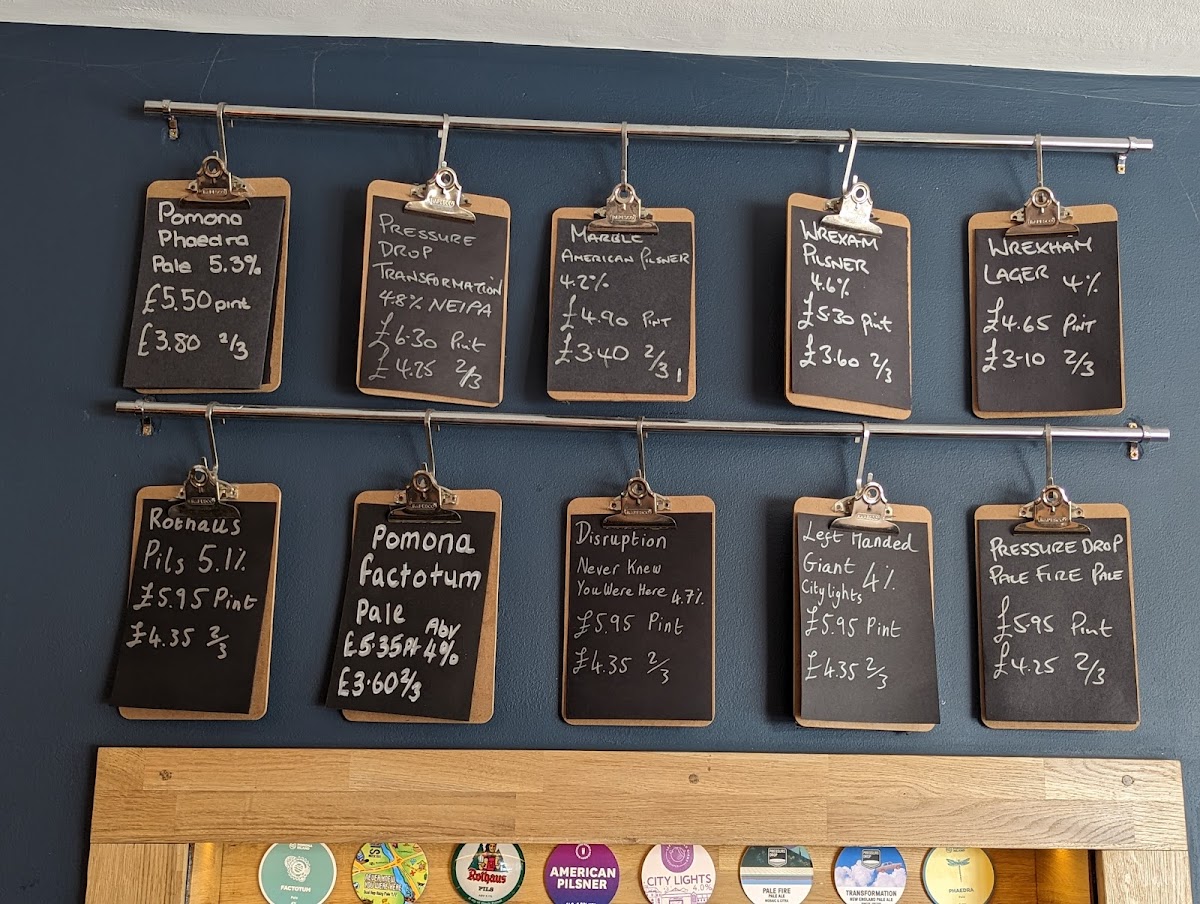 Pomona
Phaedra
Pale 5.3%
£5.50 pint
£3.80 2/3
PRESSURE
DROP
TRANSFORMATION
4.8% NEIPA
£6.30 Pint
£4.25 2/3
MARBLE
AMERICAN PILSNER
4.2%
£4.90 PINT
£3.40 2/3
WREXAM
PILSNER
4.6%
£5.30 pint
£3.60 2/3
WREXHAM
LAGER 4%
£4.65 PINT
£3-10 2/3
Rothaus
Pils 5.1%
£5.95 Pint
£4.35 2/3
Pomona
factotum
Pale
Abv
£5.35Pt 4%
£3.60 2/3
Disruption
Never Knew
You Were Here 4.7%
£5.95 Pint
£4.35 2/3
Left Handed
Giant 4%
Citylights
£5.95 Pint
£4.35 2/3
PRESSURE DROP
PALE FIRE PALE
£5.95 Pint
£4.25 2/3
FACTOTUM
NEVER KNEW
YOU WERE HERE
Rothaus
PILS
AMERICAN
PILSNER
CITY LIGHTS
4.0%
PALE FIRE
TRANSFORMATION
NEW ENGLAND PALE ALE
PHAEDRA